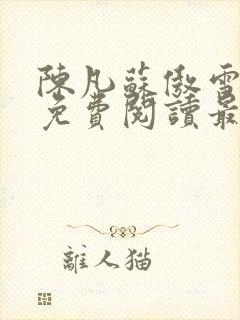 陳凡蘇傲雪
免費閱讀最
離人猫